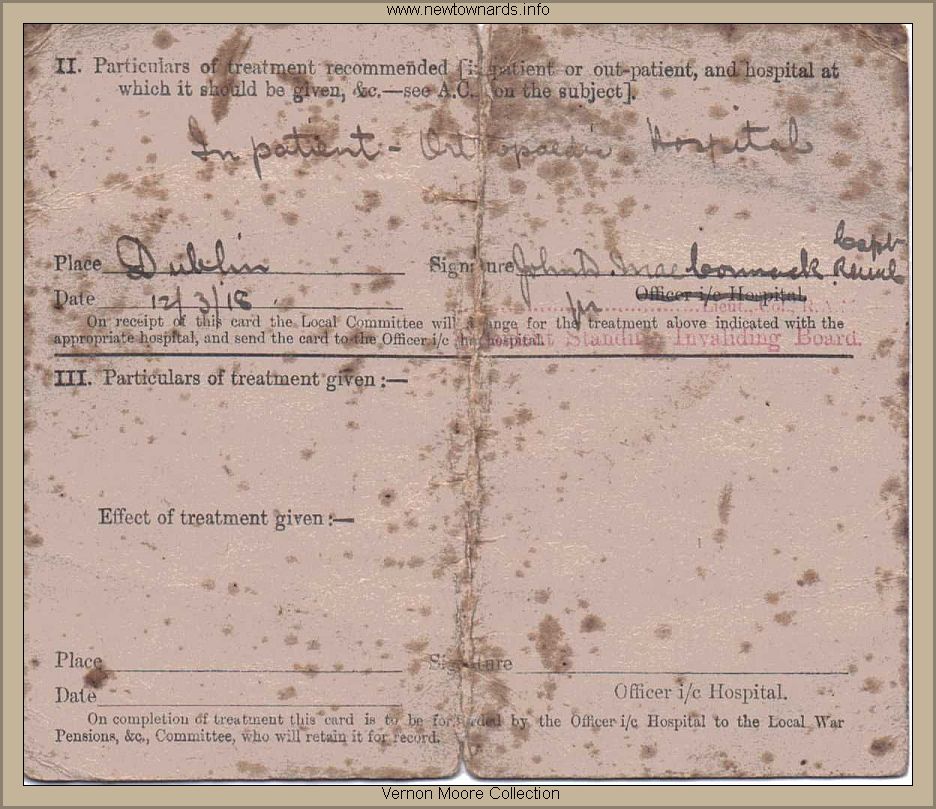 www.newtownards.info
II. Particulars of treatment recommended [in-patient or out-patient, and hospital at
which it should be given, &c.—see A.C. on the subject].
In patient - Orthopaedic Hospital
Capt
Place Dublin Signature John D. MacCormack R.A.M.C
Officer i/c Hospital.
Date 12/3/18 for Lieut. Col., R.
On receipt of this card the Local Committee will arrange for the treatment above indicated with the
appropriate hospital, and send the card to the Officer i/c the hospital.
Standing Invaliding Board.
III. Particulars of treatment given :—
Effect of treatment given :—
Place Signature
Date Officer i/c Hospital.
On completion of treatment this card is to be forwarded by the Officer i/c Hospital to the Local War
Pensions, &c., Committee, who will retain it for record.
Vernon Moore Collection